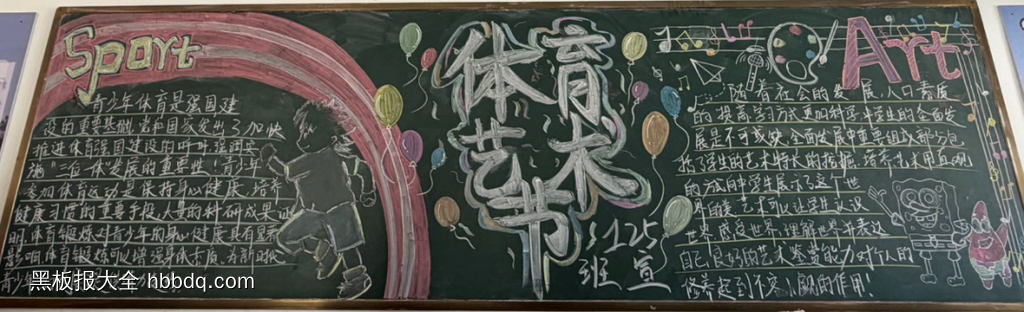 Sport
青少年体育是强国建
设的重要基础,党和国家发出了加快
推进体育强国建设的时代强音
"三位一体"发展的重要性!青少年
参加体育运动是保持身心健康、培养
健康习惯的重要手段,大量的科研成果证
明,体育锻炼对青少年的身心健康具有显著
影响,体育锻炼可以增强身体素质,为新时代
青少年
体育
艺术
节
5125
班 宣
Art
随着社会的发展,人口素质
的提高,学习方法更加科学,学生的全面发
展是不可或缺,全面发展中重要组成部分包
括了学生的艺术特长的挖掘、培养,采用直观
的方法向学生展示了这个世
界,艺术可以让学生认识
世界,感受世界,理解世界并表达
自己,良好的艺术鉴赏能力对人的
修养起到不容小觑的作用。
黑板报大全 hbbdq.com